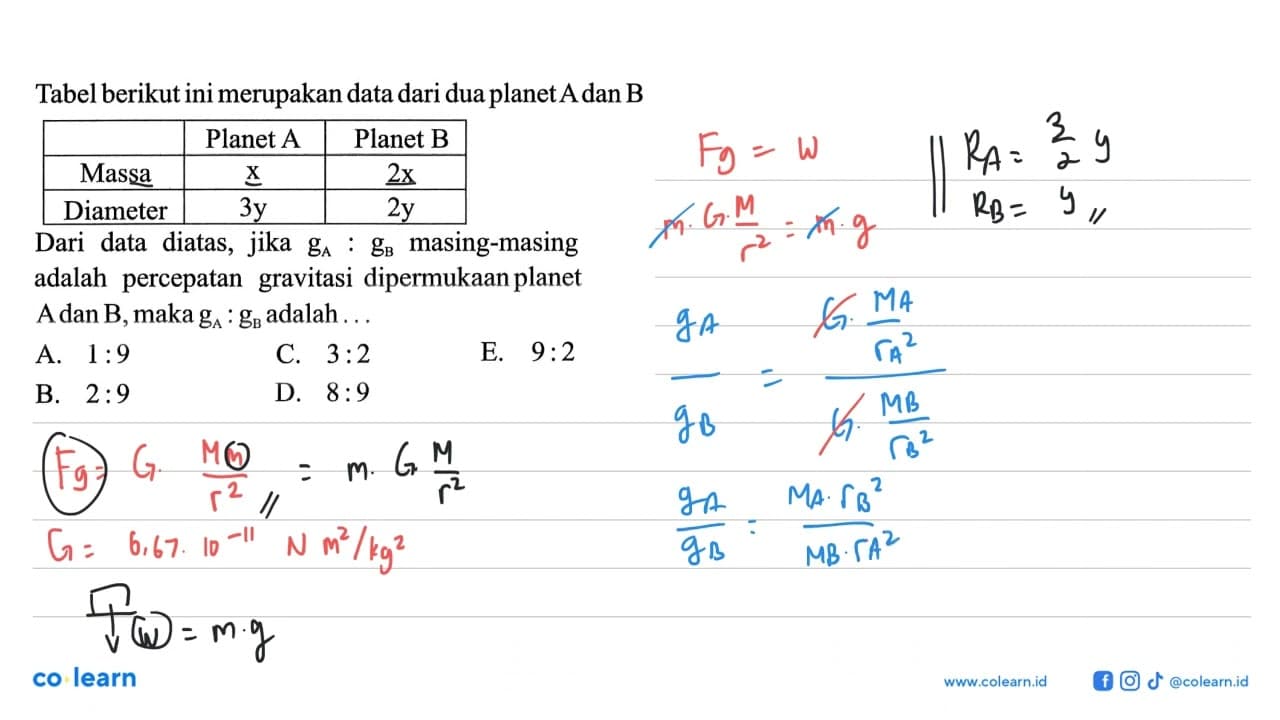 Tabel berikut ini merupakan data dari dua planet A dan B
Planet A Planet B
Massa x 2x
Diameter 3y 2y
Dari data diatas, jika gA : gB masing-masing
adalah percepatan gravitasi dipermukaan planet
A dan B, maka gA : gB adalah . . .
A. 1 : 9 C. 3 : 2 E. 9 : 2
B. 2 : 9 D. 8 : 9
Fg = G. Mm/r² = m. G M/r²
G = 6,67. 10⁻¹¹ N m²/kg²
w = m.g
Fg = w
m. G. M/r² = m. g
gA/gB = G. MA/rA² / G. MB/rB²
gA/gB = MA. rB² / MB. rA²
RA = 3/2 y
RB = y
co learn
www.colearn.id
@colearn.id